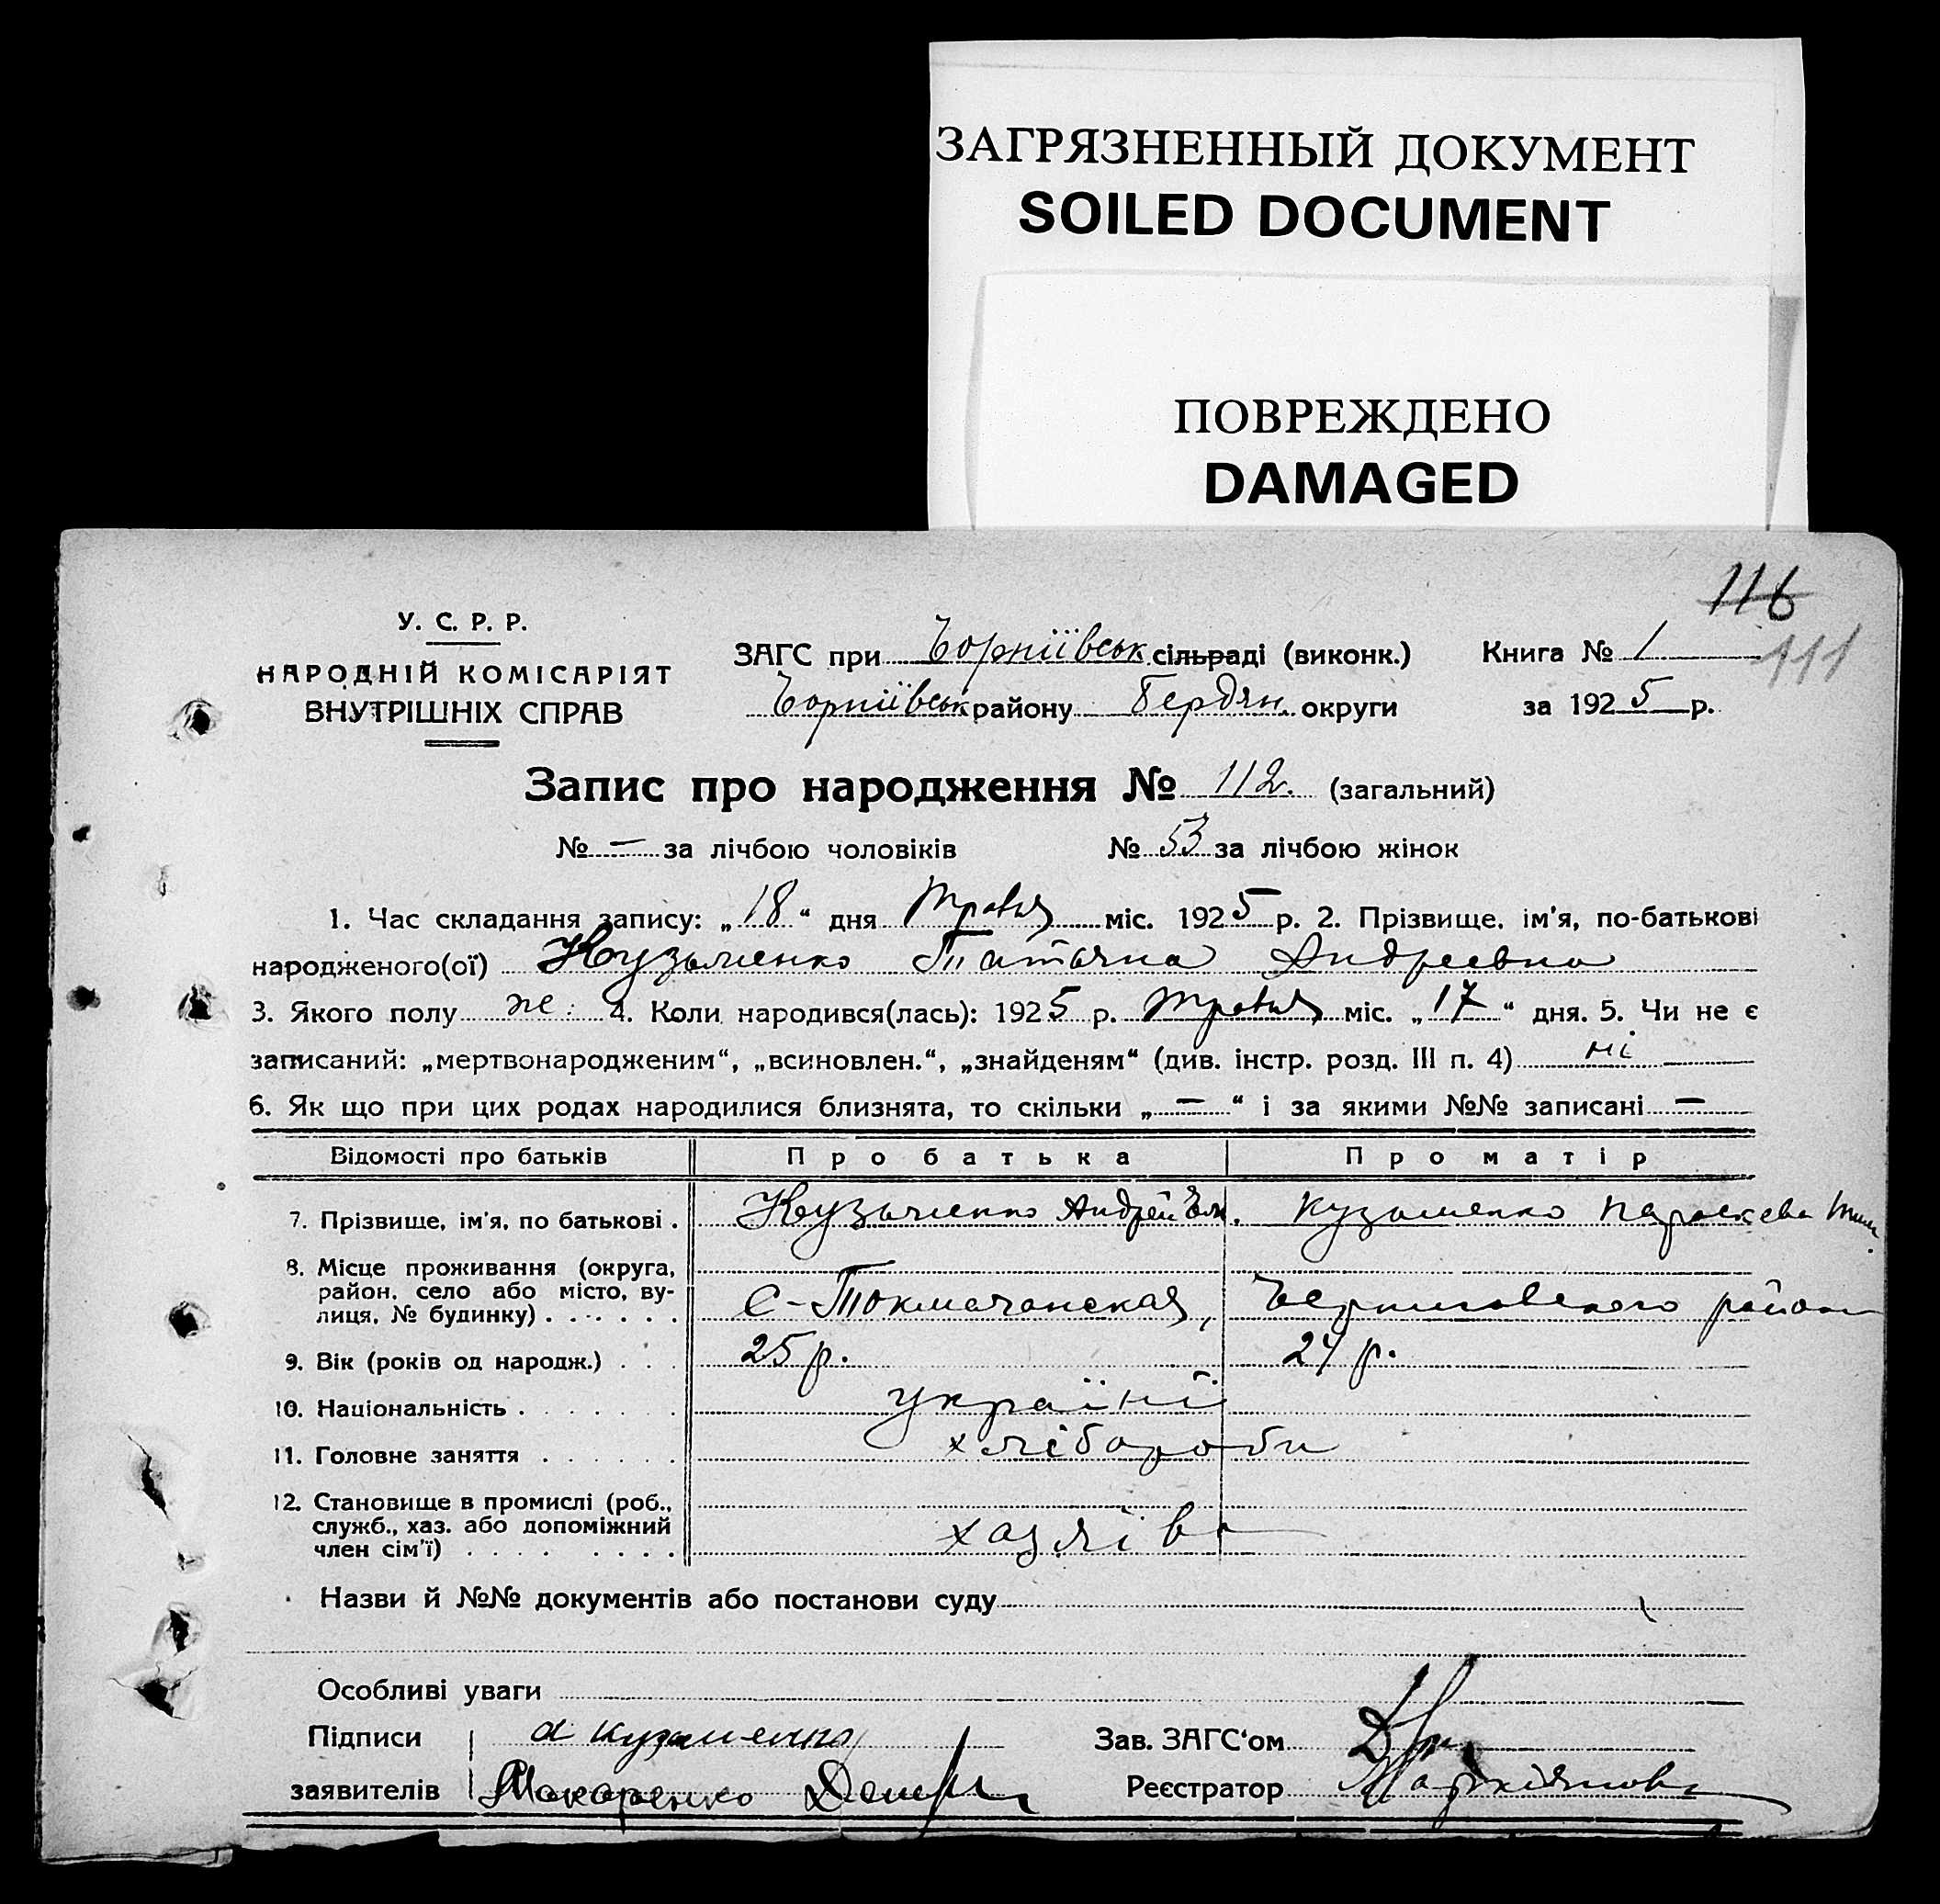 ЗАГРЯЗНЕННЫЙ ДОКУМЕНТ
SOILED DOCUMENT
ПОВРЕЖДЕНО
DAMAGED
116
111
У. С. Р. Р.
НАРОДНІЙ КОМІСАРІЯТ
ВНУТРІШНІХ СПРАВ
ЗАГС при сільраді (виконк.) Книга № 1
району Бердян. округи за 1925 р.
Запис про народження № 112. (загальний)
№ — за лічбою чоловіків № 53 за лічбою жінок
1. Час складання запису: „18“ дня Травня міс. 1925 р. 2. Прізвище, ім'я, по-батькові
народженого(ої) Кузьменко Татьяна Андреевна
3. Якого полу ж. 4. Коли народився(лась): 1925 р. Травня міс. „17“ дня. 5. Чи не є
записаний: „мертвонародженим“, „всиновлен.“, „знайденям“ (див. інстр. розд. III п. 4) ні
6. Як що при цих родах народилися близнята, то скільки „—“ і за якими №№ записані —
Відомості про батьків Про батька Про матір
7. Прізвище, ім'я, по батькові . Кузьменко Андрей Кузьменко Параскева
8. Місце проживання (округа,
район, село або місто, ву-
лиця, № будинку) . . . . . . С-Токмачанская, Черниговского района
9. Вік (років од народж.) . . . 25 р. 24 р.
10. Національність . . . . . . . україні
11. Головне заняття . . . . . . хлібороби
12. Становище в промислі (роб.,
служб., хаз. або допоміжний
член сім'ї) . . . . . . . . . хазяїв
Назви й №№ документів або постанови суду
Особливі уваги
Підписи А Кузьменко Зав. ЗАГС'ом
заявителів Макаренко Реєстратор